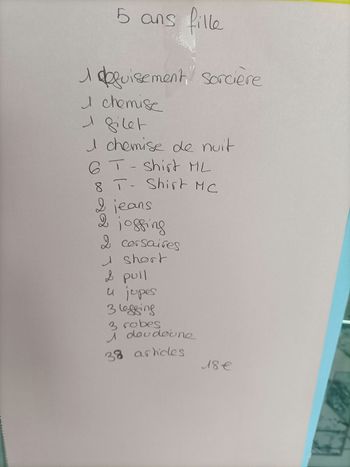 5 ans fille
1 déguisement sorcière
1 chemise
1 gilet
1 chemise de nuit
6 T-shirt ML
8 T-shirt MC
2 jeans
2 jogging
2 corsaires
1 short
2 pull
4 jupes
3 legging
3 robes
1 doudoune
38 articles
18€